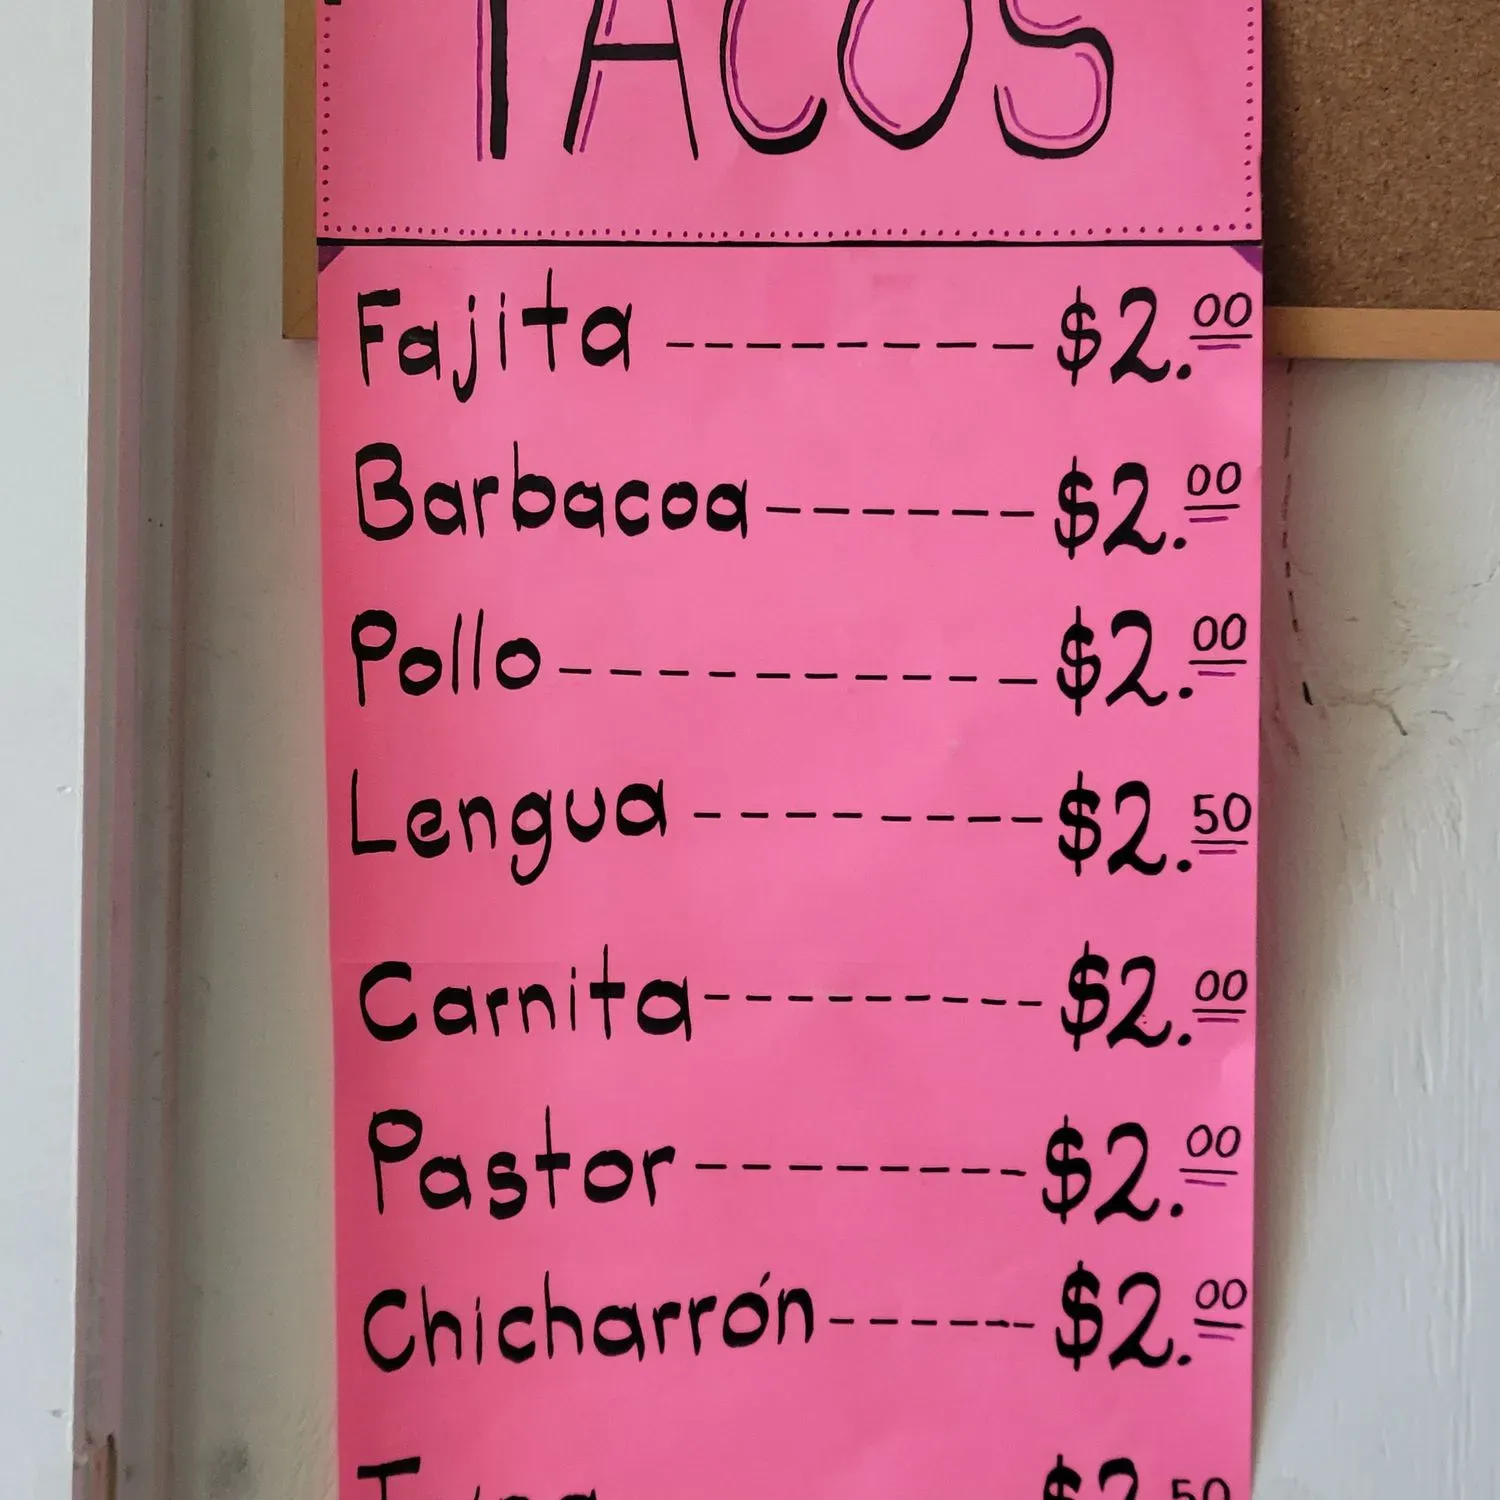 TACOS
Fajita --------- $2.00
Barbacoa ------ $2.00
Pollo ---------- $2.00
Lengua -------- $2.50
Carnita --------- $2.00
Pastor -------- $2.00
Chicharrón ------ $2.00
$2.50